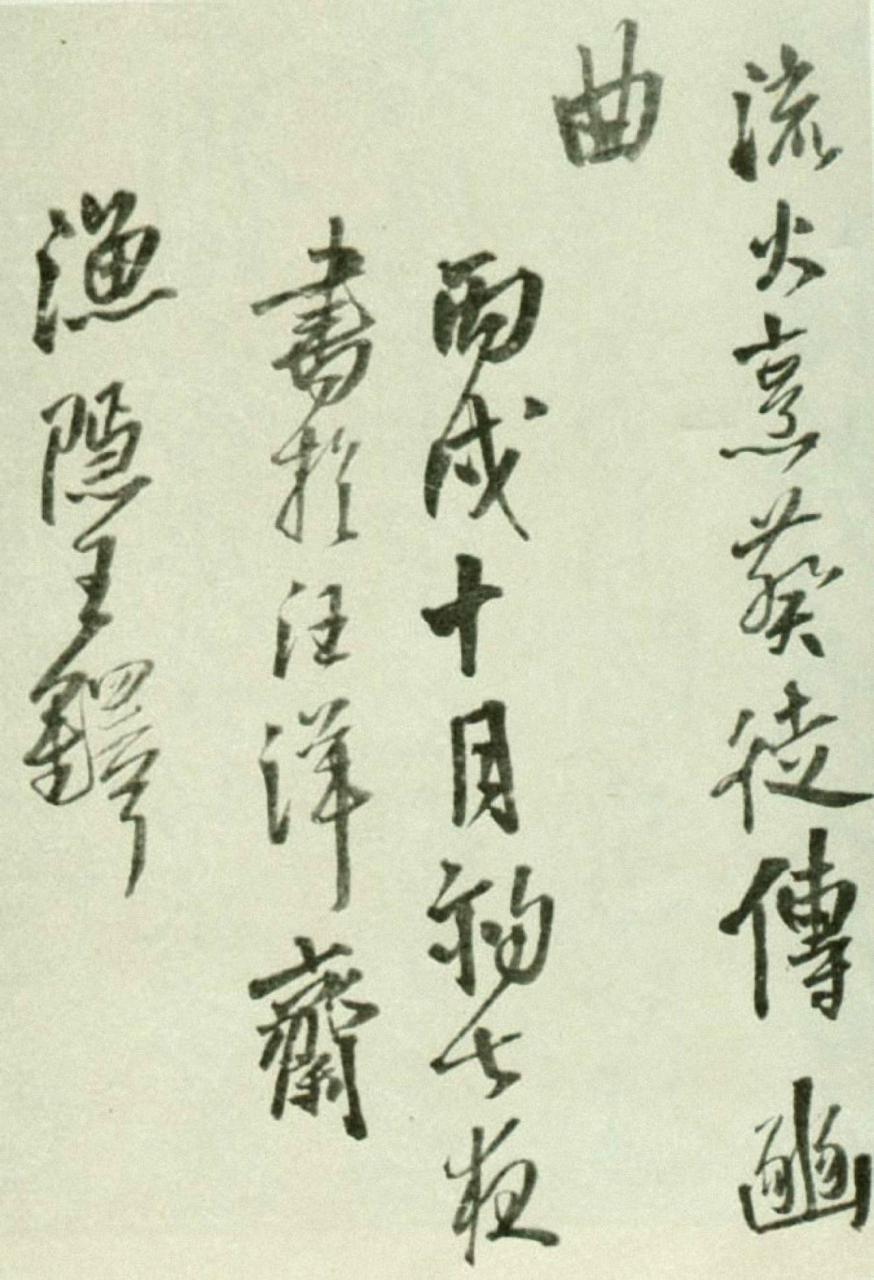 流火烹葵徒傳豳
曲
丙戌十月初七夜
書於汪洋齋
漁隱王鐸